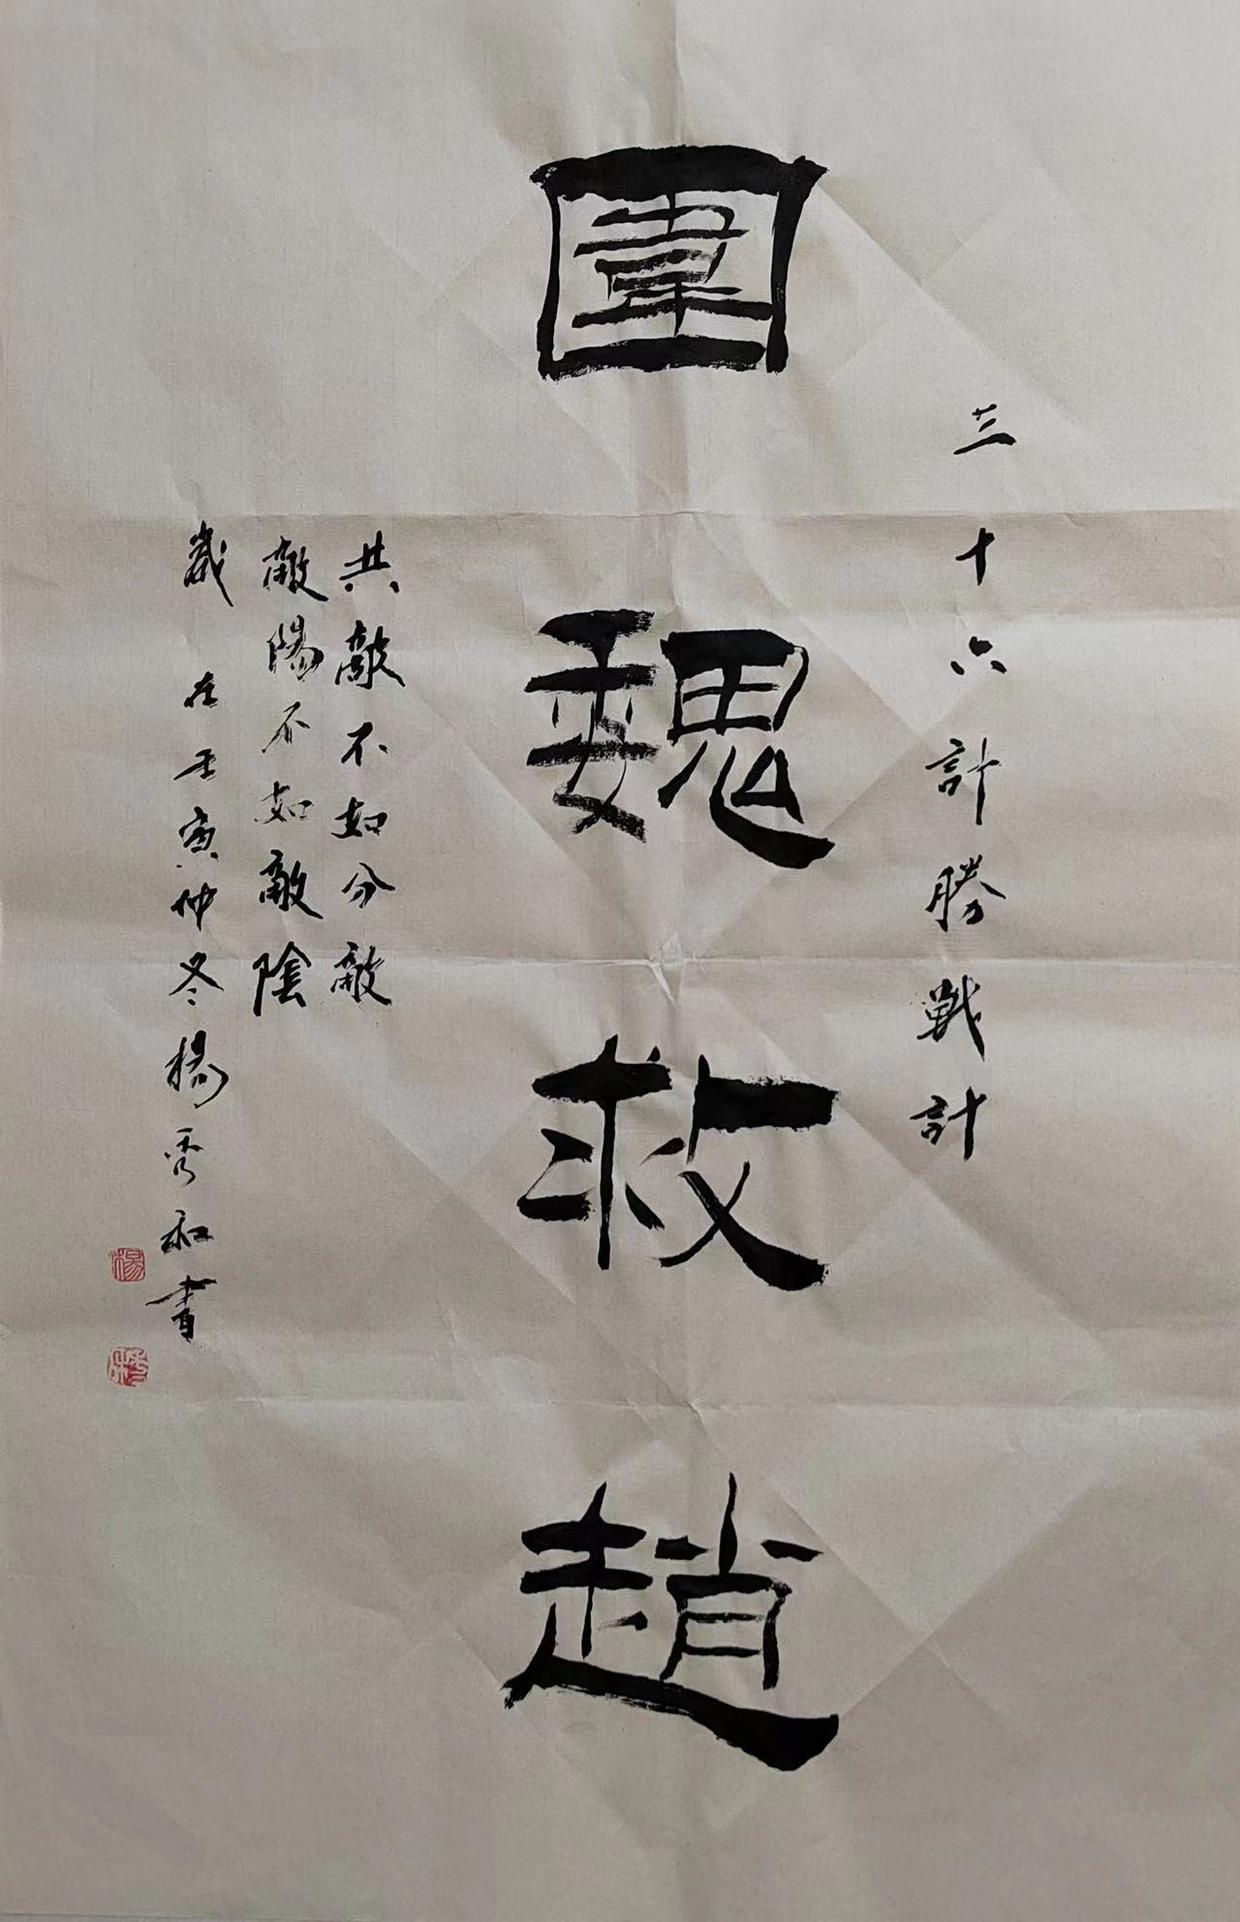 三十六計勝戰計
圍魏救趙
共敵不如分敵
敵陽不如敵陰
歲在壬寅仲冬楊秀和書
楊
秀和